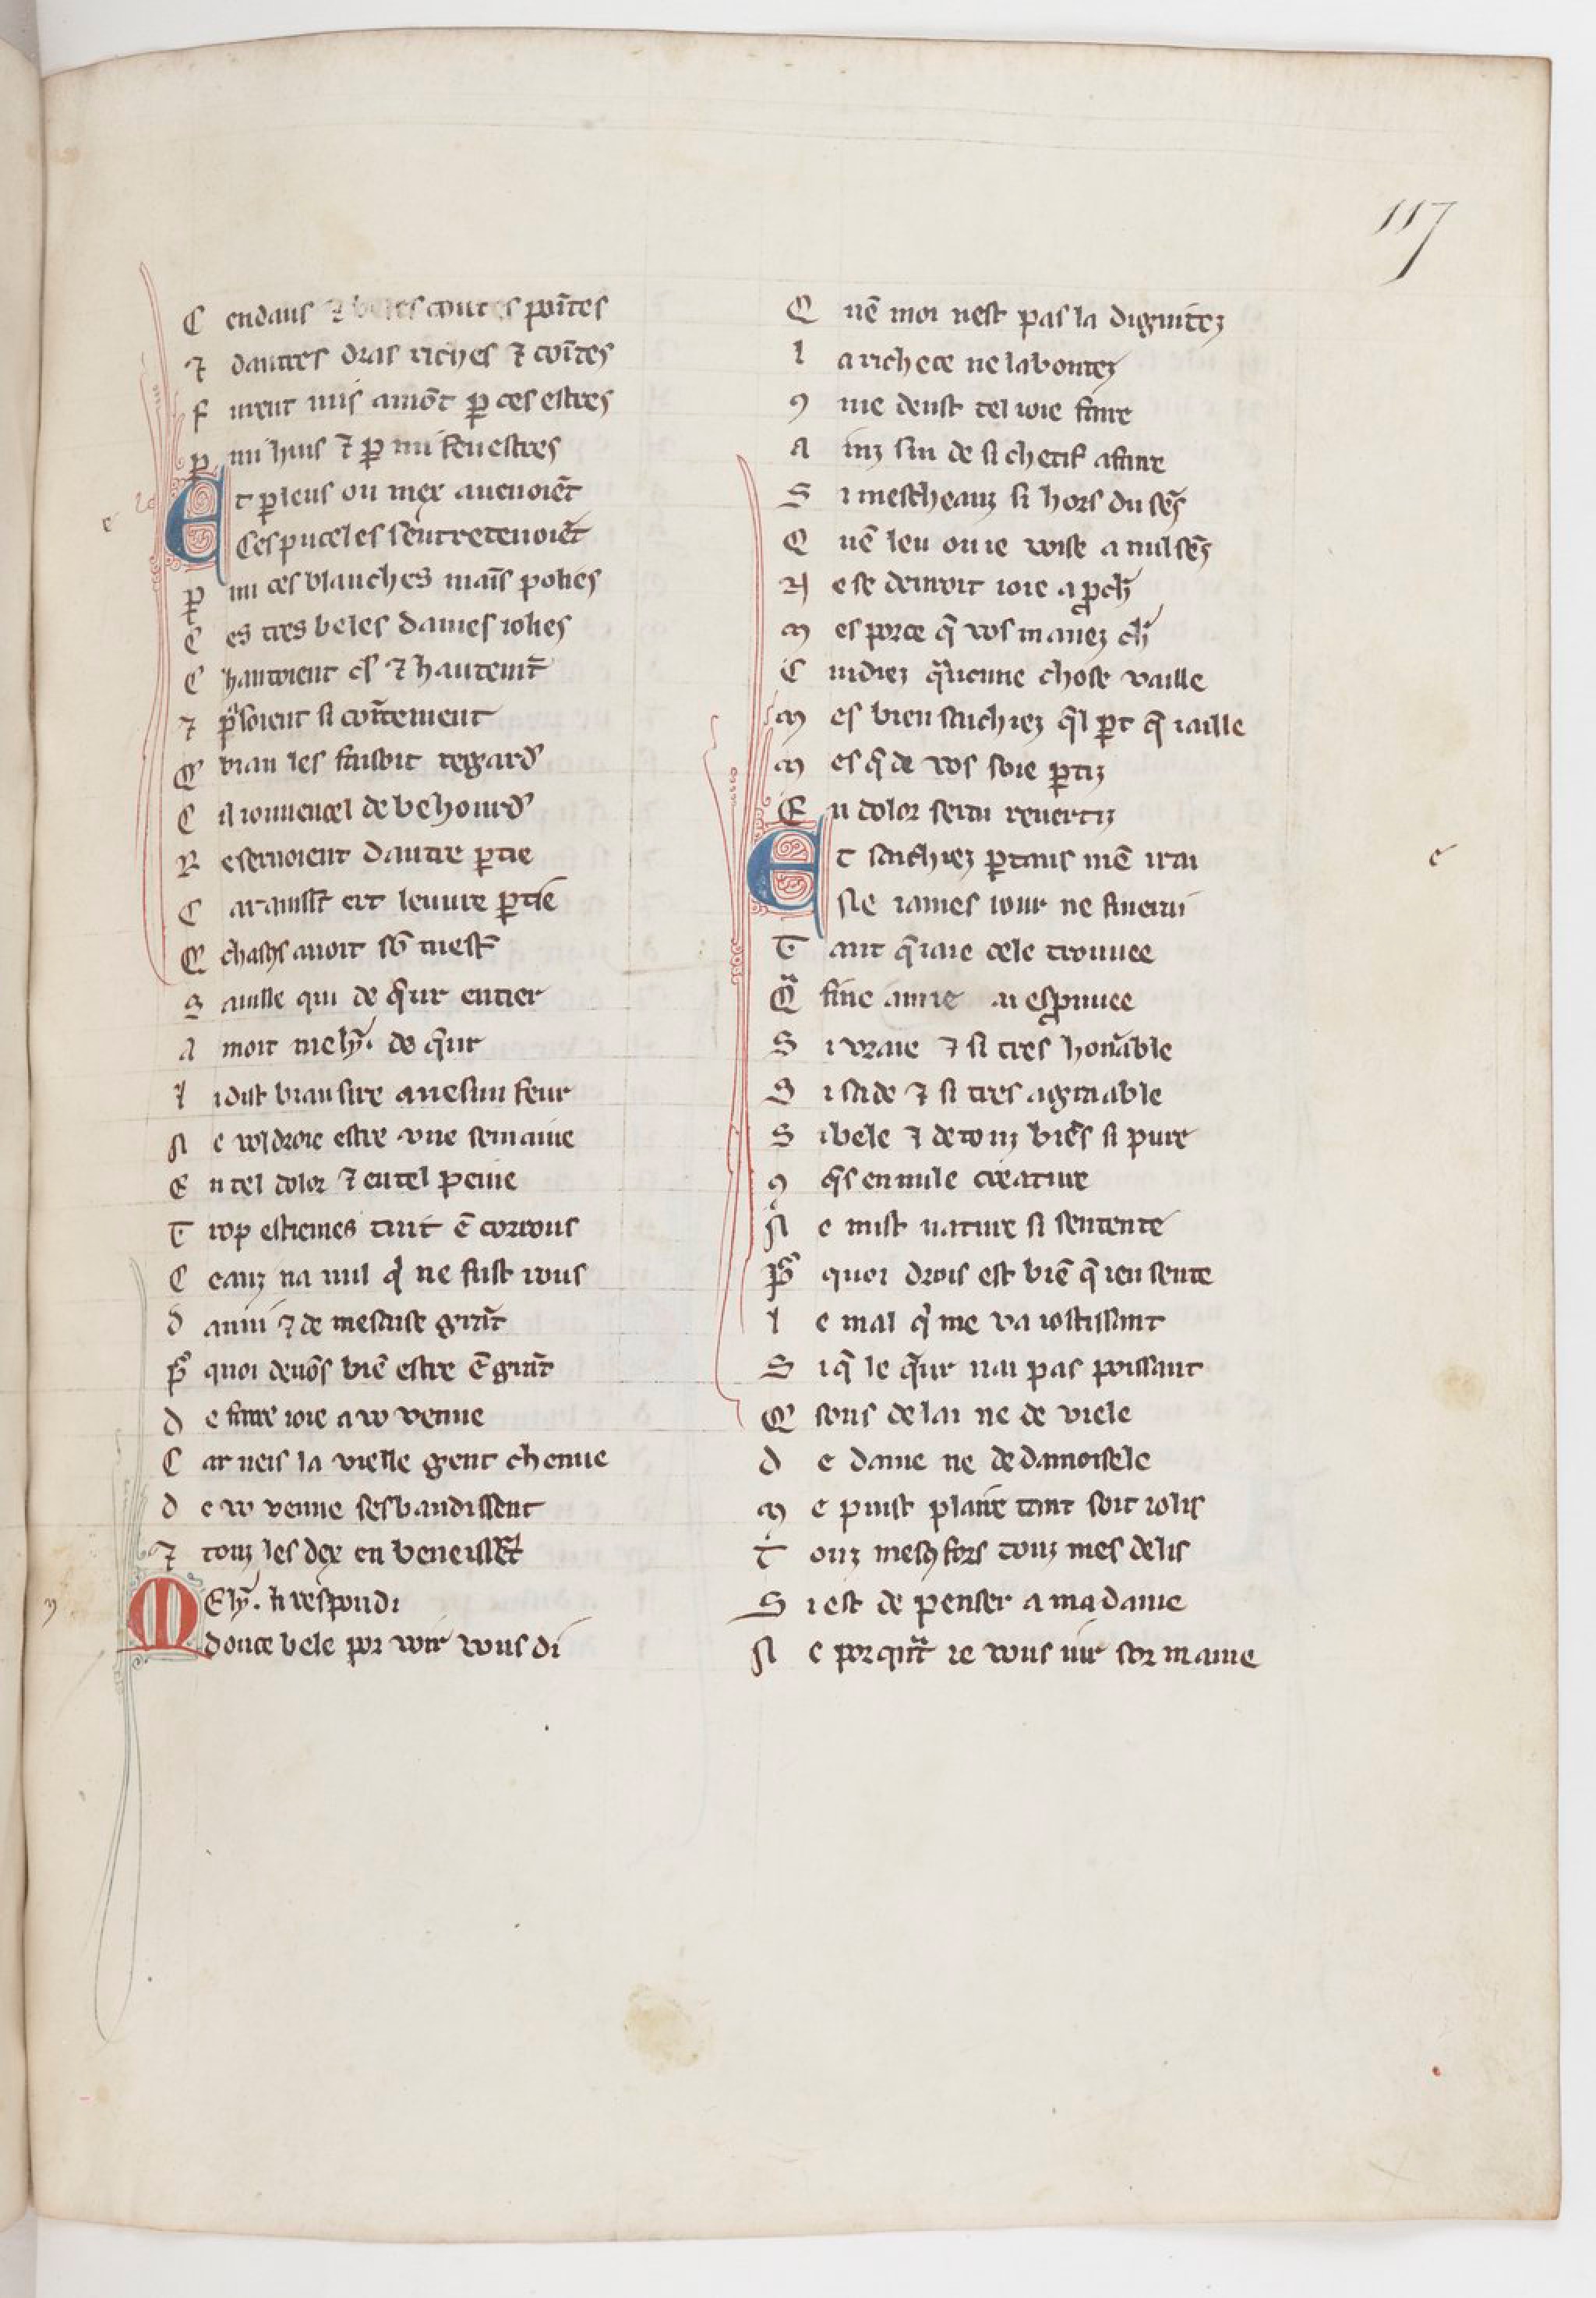 117
C endaus ⁊ beles coutes poītes
⁊ dautres dras riches ⁊ coītes
F urent mis amōt ꝑ ces estres
ꝑ mi huis ⁊ ꝑ mi fenestres
E t ꝑ leus ou mex auenoiēt
Ces puceles sentretenoiēt
ꝑ mi ces blanches maīs polies
C es tres beles dames iolies
C hantoient cl' ⁊ hautemt̄
⁊ ꝑloient si coītement
Q biau les faisoit regard'
C il iouuencel de behourd'
R eseruoient dautre ꝑtie
C
Q chascꝰ auoit sō mest'
S aulle qui de q̄ur entier
A moit mely᷑. de q̄ur
l i dist biau sire a nesun feur
N e voldroie estre vne semaine
E n tel dolor ⁊ en tel peine
T rop estiemes tuit ē corrous
C eauz na nul q' ne fust rous
d anui ⁊ de mesaise grāt
P᷑ quoi deuōs biē estre ē grāt
d e faire ioie a vo venue
C ar neis la vielle gent chenue
d e vo venue sesbaudissent
⁊ touz les dex en beneissēt
M Ely᷑. li respondi
douce bele por voir vous di
Q uē moi nest pas la dignitez
l a richece ne la bontez
ꝯ me deust tel ioie faire
A inz sui de si chetif afaire
S i mescheanz si hors du sēs
Q uē leu ou ie voise a nul sēs
N e se deuroit ioie aꝓch'
M es por ce q̄ vos mauez ch'
C uidiez q̄ucune chose vaille
M es bien sachiez q̄l ꝑt q̄ iaille
M es q̄ de vos soie ꝑtiz
E n dolor serai reuertiz
E t sachiez ꝑtans mē irai
Ne iames iour ne finerai
T ant q̄ iaie cele trouuee
Q fine amie ai esprouuee
S i vraie ⁊ si tres honʳable
S i sade ⁊ si tres agraable
S i bele ⁊ de touz biēs si pure
ꝯ q̄s en nule creature
N e mist nature si sentente
P᷑ quoi drois est biē q̄ ien sente
l e mal q' me va iostissant
S i q̄ le q̄ur nai pas poissant
Q sons de lai ne de viele
d e dame ne de damoisele
M e puist plaire tant soit iolis
T ouz mes ꝯfors touz mes delis
S i est de penser a ma dame
N e por quāt ie vous iur sor mame